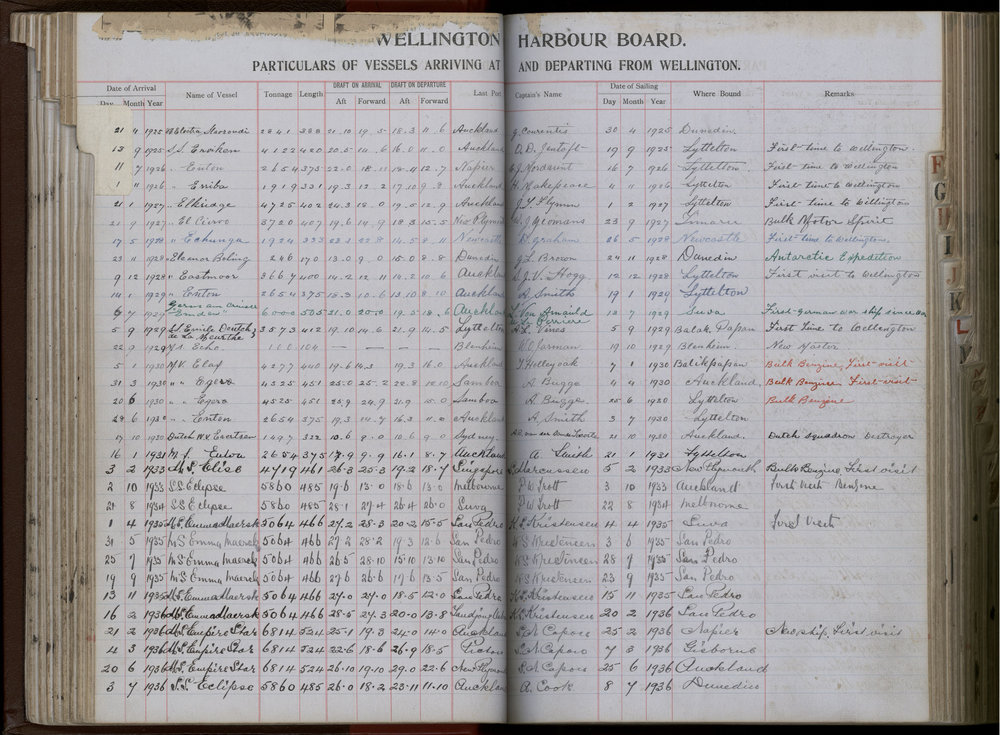 WELLINGTON HARBOUR BOARD.
PARTICULARS OF VESSELS ARRIVING AT AND DEPARTING FROM WELLINGTON.
Date of Arrival Name of Vessel Tonnage Length DRAFT ON ARRIVAL DRAFT ON DEPARTURE Last Port Captain's Name Date of Sailing Where Bound Remarks
Day Month Year Aft Forward Aft Forward Day Month Year
21 4 1925 2841 21.10 19.5 18.3 11.6 Auckland 30 4 1925 Dunedin
13 9 1925 S.S. Eroken 4122 420 20.5 14.6 16.0 11.0 Auckland 19 9 1925 Lyttelton First time to Wellington
11 7 1926 " Enton 2654 375 22.0 18.11 12.7 Napier 16 7 1926 Lyttelton First time to Wellington
1 11 1926 " Erriba 1919 331 19.3 Auckland H. Makepeace 4 11 1926 Lyttelton First time to Wellington
21 1 1927 " Elkridge 4725 402 24.3 19.5 12.9 Auckland J. F. Flynn 1 2 1927 Lyttelton First time to Wellington
21 9 1927 " El Cirvo 3720 407 19.6 14.9 18.3 15.5 New Plym W. J. Yeomans 23 9 1927 Timaru Bulk Motor Spirit
17 5 1928 " Echunga 1924 333 22.8 14.5 8.11 Newcastle Graham 26 5 1928 Newcastle First time to Wellington
23 11 1928 Eleanor Boling 246 170 13.0 9.0 15.0 8.8 Dunedin J. L. Brown 24 11 1928 Dunedin Antarctic Expedition
9 12 1928 " Eastmoor 3667 400 14.2 12.11 14.2 10.6 Auckland J. V. Hogg 12 12 1928 Lyttelton First visit to Wellington
14 1 1929 " Enton 2654 375 15.3 10.6 13.10 8.10 Auckland A. Smith 19 1 1929 Lyttelton
6 7 1929 German cruiser "Emden" 6000 535 21.0 20.0 19.5 18.6 Auckland 13 7 1929 Suva First German war ship since war
5 9 1929 S.S. Emile Deutch de La Meurthe 3573 412 19.10 14.6 21.9 14.5 Lyttelton Vines 5 9 1929 Balak Papan First Time to Wellington
22 9 1929 Echo 100 104 Blenheim Jarman 19 10 1929 Blenheim New Master
5 1 1930 M.V. Elax 4277 440 19.6 14.3 19.3 16.0 Auckland T. Holleyoak 7 1 1930 Balikpapan Bulk Benzine, First visit
31 3 1930 " " Egero 4325 451 25.0 25.2 22.8 Samboa A. Bugge 4 4 1930 Auckland Bulk Benzine First visit
20 6 1930 " " Egero 4325 451 25.9 24.9 21.9 15.0 Samboa A. Bugge 25 6 1930 Lyttelton Bulk Benzine
29 6 1930 " Enton 2654 375 19.3 14.7 16.3 11.0 Auckland A. Smith 3 7 1930 Lyttelton
17 10 1930 Dutch M.V. Evertsen 1497 322 10.6 9.0 10.6 9.0 Sydney 21 10 1930 Auckland Dutch Squadron Destroyer
16 1 1931 Enton 2654 375 17.9 9.9 16.1 8.7 Auckland A. Smith 21 1 1931 Lyttelton
3 2 1933 M.S. Elise 4719 461 26.3 25.3 19.2 18.7 Singapore Marcussen 5 2 1933 New Plymouth Bulk Benzine First visit
2 10 1933 S.S. Eclipse 5860 485 19.6 13.0 18.6 13.0 Melbourne P. W. Trott 3 10 1933 Auckland First visit Benzine
21 8 1934 S.S. Eclipse 5860 485 28.1 27.4 26.4 26.0 Suva P. W. Trott 22 8 1934 Melbourne
1 4 1935 M.S. Emma Maersk 5064 466 27.2 28.3 20.2 15.5 San Pedro K. S. Kristensen 4 4 1935 Suva First Visit
31 5 1935 M.S. Emma Maersk 5064 466 27.2 28.2 19.3 12.6 San Pedro K. S. Kristensen 3 6 1935 San Pedro
25 7 1935 M.S. Emma Maersk 5064 466 26.5 28.10 15.10 13.10 San Pedro K. S. Kristensen 28 7 1935 San Pedro
19 9 1935 M.S. Emma Maersk 5064 466 27.6 26.6 17.6 13.5 San Pedro K. S. Kristensen 23 9 1935 San Pedro
13 11 1935 M.S. Emma Maersk 5064 466 27.0 27.0 18.5 12.0 San Pedro K. S. Kristensen 15 11 1935 San Pedro
16 2 1936 M.S. Emma Maersk 5064 466 28.5 27.3 20.0 13.8 K. S. Kristensen 20 2 1936 San Pedro
21 2 1936 M.S. Empire Star 6814 524 25.1 19.3 24.0 14.0 Auckland S. N. Capon 25 2 1936 Napier New ship, First visit
4 3 1936 M.S. Empire Star 6814 524 22.6 18.6 26.9 18.5 Picton S. N. Capon 7 3 1936 Gisborne
20 6 1936 M.S. Empire Star 6814 524 26.10 19.10 29.0 22.6 New Plymou S. N. Capon 25 6 1936 Auckland
3 7 1936 S.S. Eclipse 5860 485 26.0 18.2 23.11 11.10 Auckland A. Cook 8 7 1936 Dunedin
F
G
H
I
J
K
L